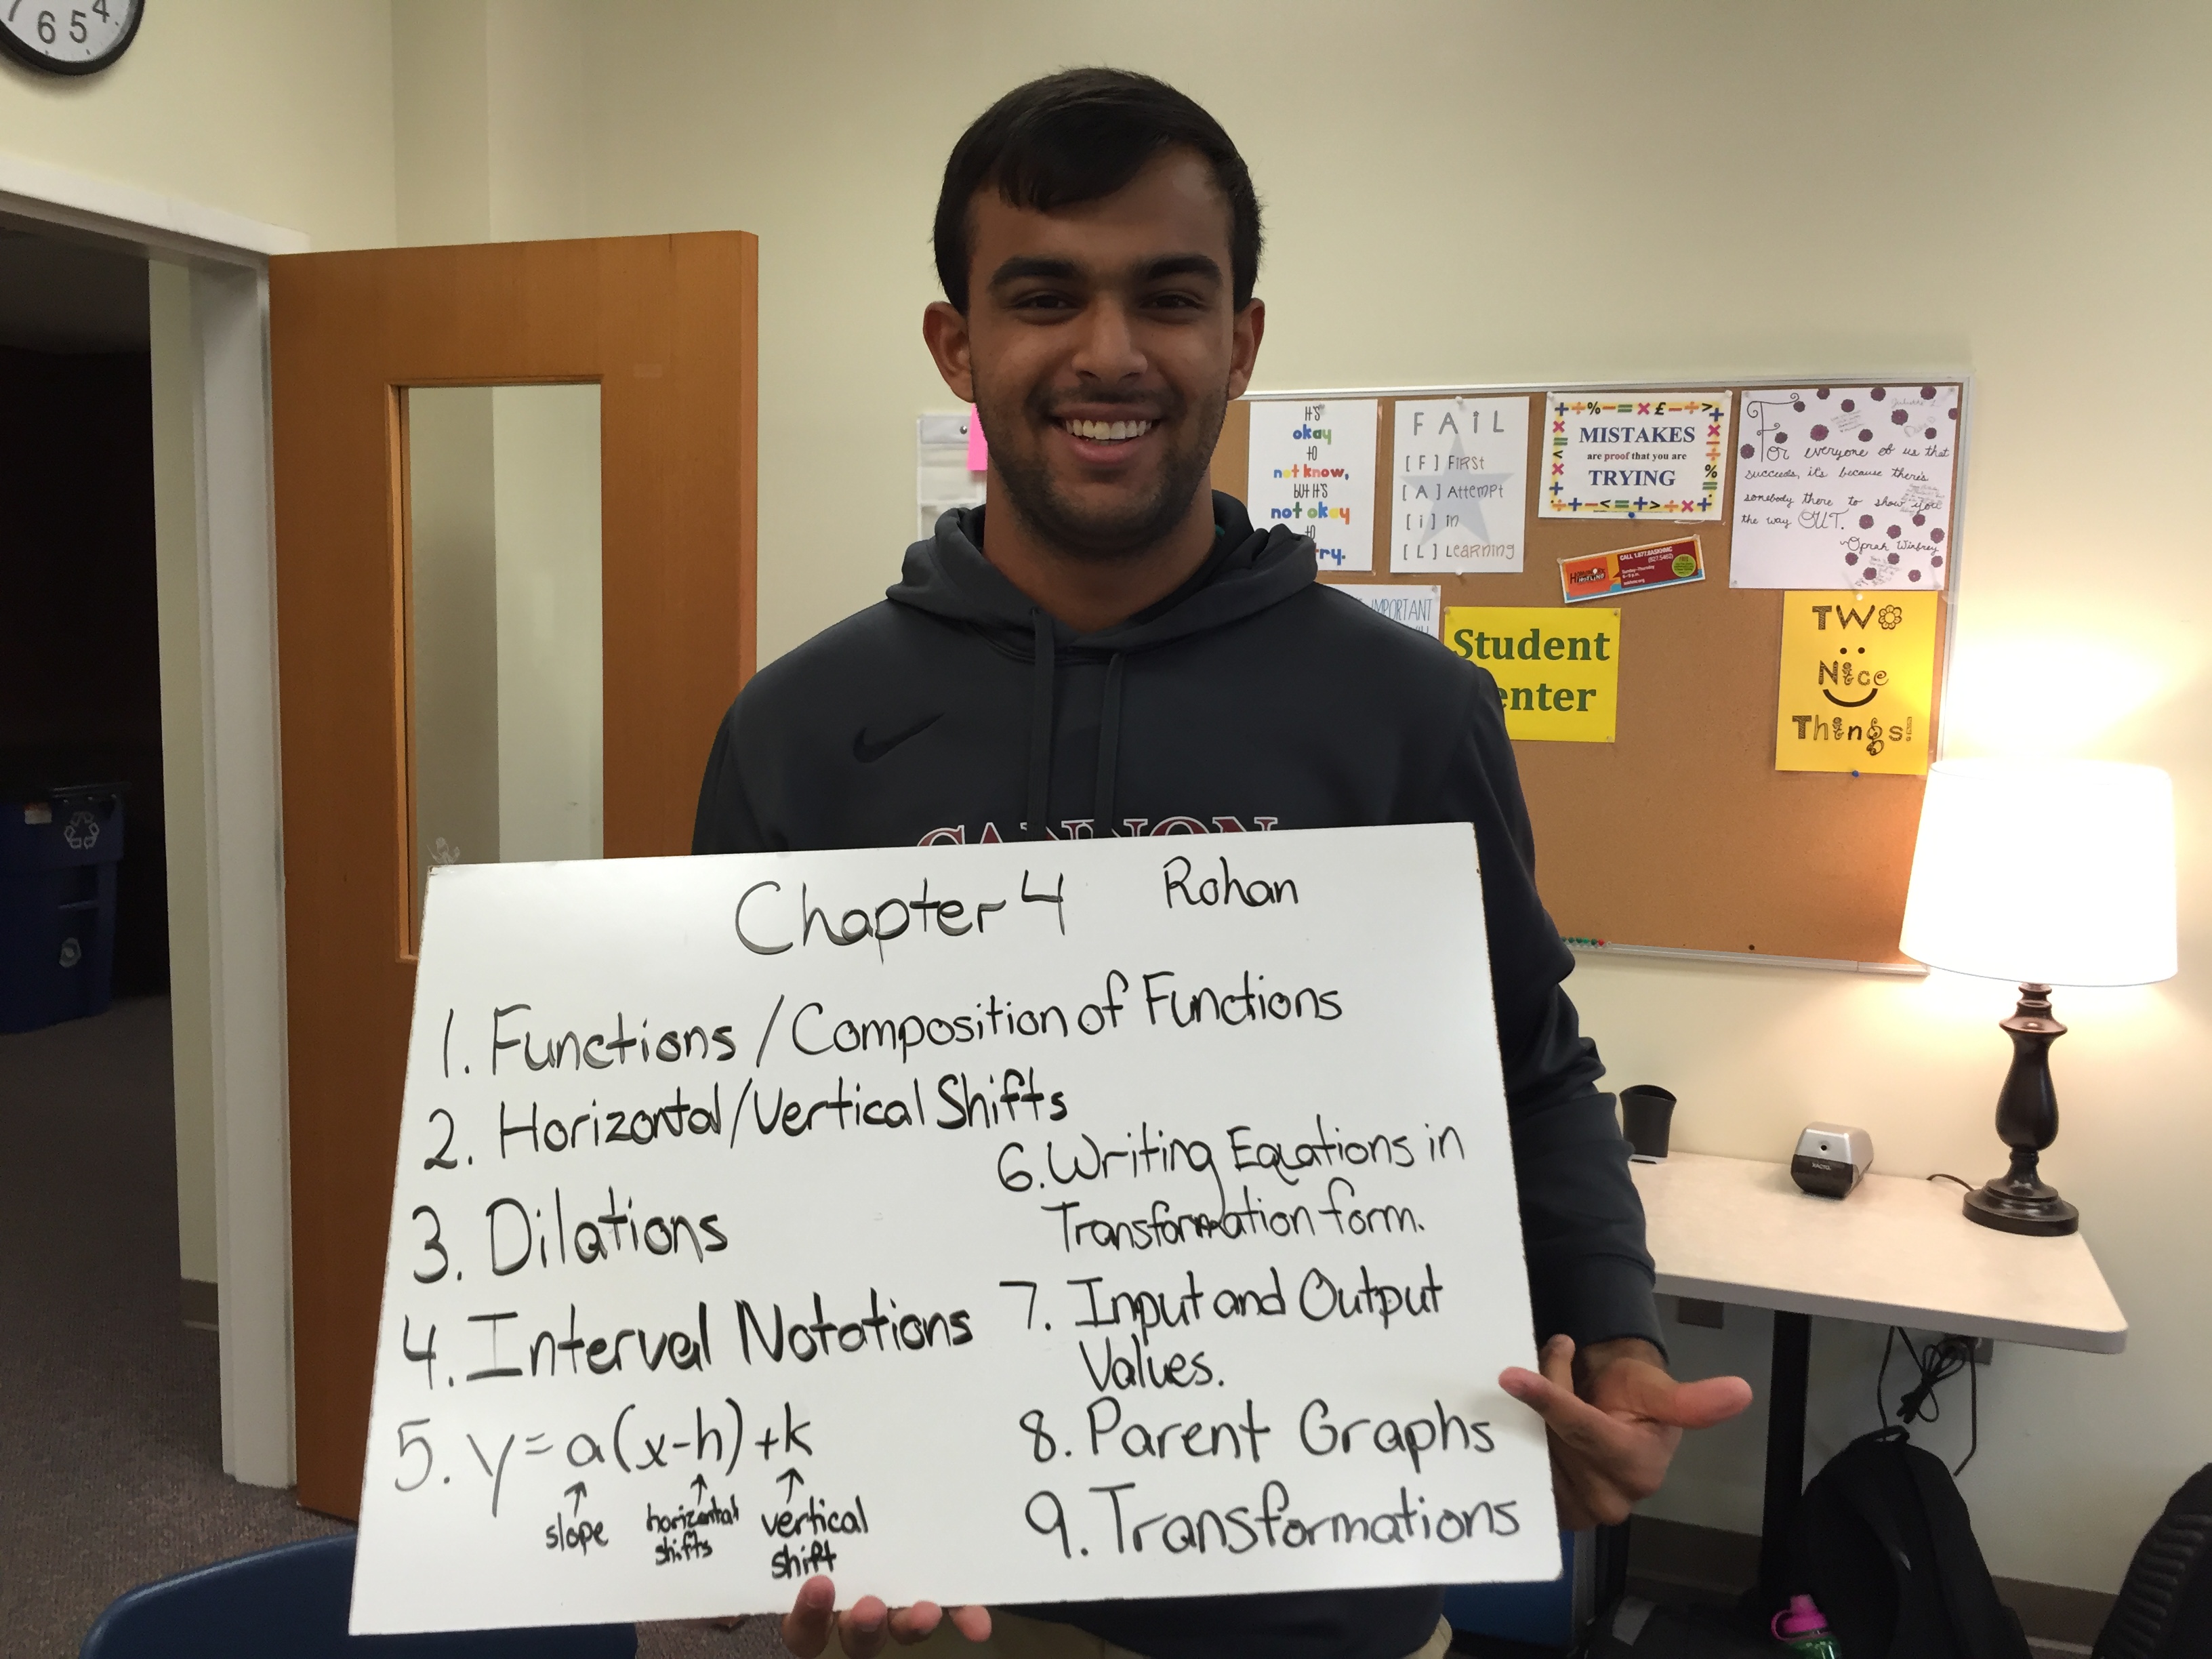 7 6 5 4
IT'S
okay
to
not know,
BUT IT'S
not okay
to
try.
FAIL
[F] First
[A] Attempt
[i] in
[L] Learning
MISTAKES
are proof that you are
TRYING
For everyone of us that
succeeds, it's because there's
somebody there to show you
the way OUT.
~Oprah Winfrey
CALL 1.877.ASKHMC
IMPORTANT
Student
enter
TWO
Nice
Things!
CANNON
Chapter 4 Rohan
1. Functions / Composition of Functions
2. Horizontal/Vertical Shifts
3. Dilations
4. Interval Notations
5. y=a(x-h)+k
slope
horizontal
shifts
vertical
shift
6. Writing Equations in
Transformation form.
7. Input and Output
Values.
8. Parent Graphs
9. Transformations